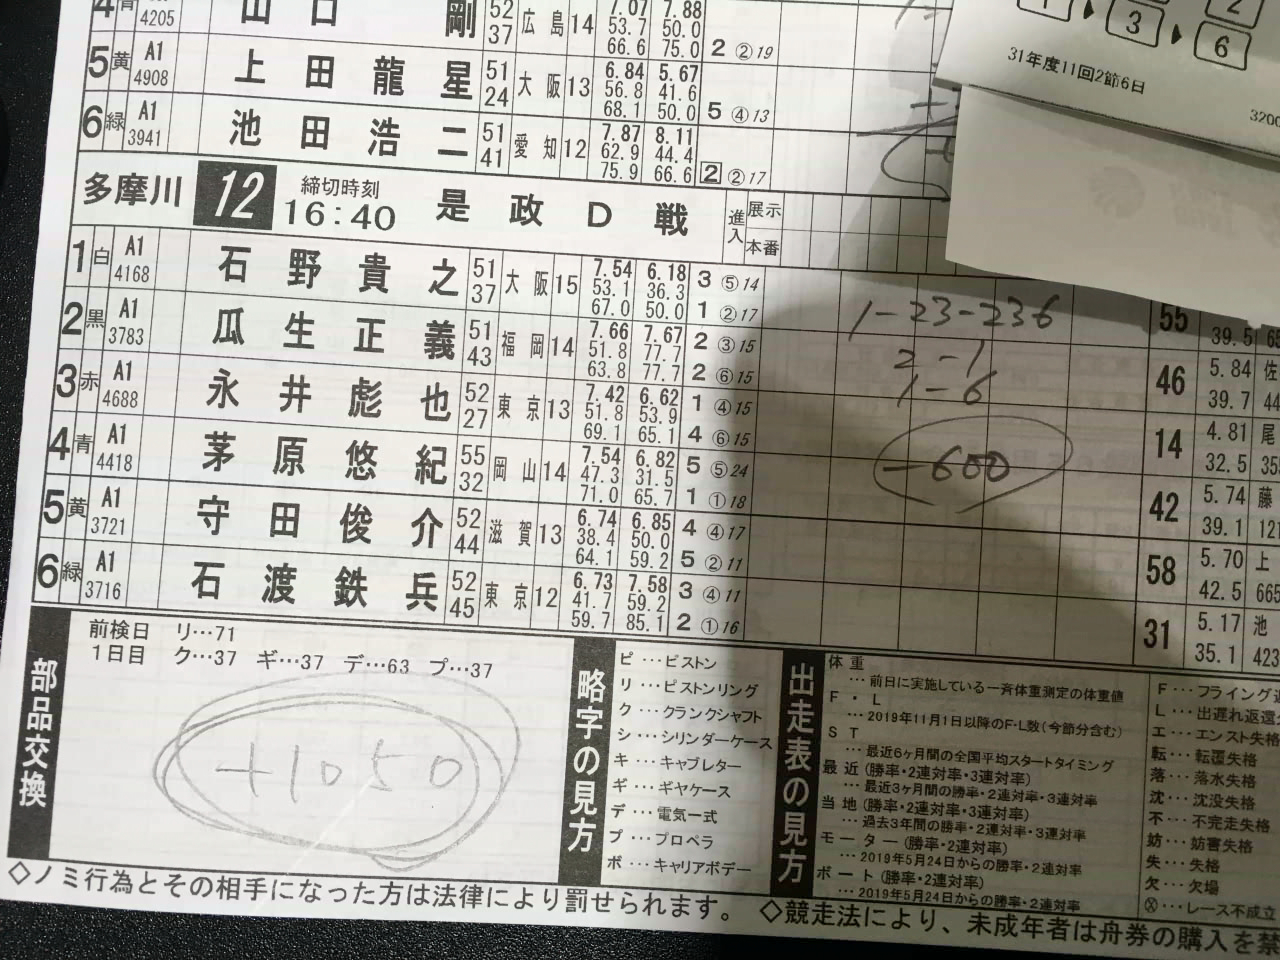 4 青 4205 山 口 剛 52 37 広島 14 7.07 53.7 66.6 7.88 50.0 75.0 2 ②19
5 黄 A1 4908 上 田 龍 星 51 24 大阪 13 6.84 56.8 68.1 5.67 41.6 50.0 5 ④13
6 緑 A1 3941 池 田 浩 二 51 41 愛知 12 7.87 62.9 75.9 8.11 44.4 66.6 2 ②17
3 6 2
31年度11回2節6日
3200
多摩川 12 締切時刻 16:40 是 政 D 戦 進入 展示 本番
1 白 A1 4168 石 野 貴 之 51 37 大阪 15 7.54 53.1 67.0 6.18 36.3 50.0 3 ⑤14 1 ②17
2 黒 A1 3783 瓜 生 正 義 51 43 福岡 14 7.66 51.8 63.8 7.67 77.7 77.7 2 ③15 2 ⑥15
3 赤 A1 4688 永 井 彪 也 52 27 東京 13 7.42 51.8 69.1 6.62 53.9 65.1 1 ④15 4 ⑥15
4 青 A1 4418 茅 原 悠 紀 55 32 岡山 14 7.54 47.3 71.0 6.82 31.5 65.7 5 ⑤24 1 ①18
5 黄 A1 3721 守 田 俊 介 52 44 滋賀 13 6.74 38.4 64.1 6.85 50.0 59.2 4 ④17 5 ②11
6 緑 A1 3716 石 渡 鉄 兵 52 45 東京 12 6.73 41.7 59.7 7.58 59.2 85.1 3 ④11 2 ①16
1-23-236
2-1
1-6
-600
55 39.5
46 5.84 39.7 佐
14 4.81 32.5 尾 355
42 5.74 39.1 藤 121
58 5.70 42.5 上 665
31 5.17 35.1 池 423
部品交換
前検日 リ…71
1日目 ク…37 ギ…37 デ…63 プ…37
+1050
略字の見方
ピ…ピストン
リ…ピストンリング
ク…クランクシャフト
シ…シリンダーケース
キ…キャブレター
ギ…ギヤケース
デ…電気一式
プ…プロペラ
ボ…キャリアボデー
出走表の見方
体重
…前日に実施している一斉体重測定の体重値
F・L
…2019年11月1日以降のF・L数(今節分含む)
ST
…最近6ヶ月間の全国平均スタートタイミング
最近(勝率・2連対率・3連対率)
…最近3ヶ月間の勝率・2連対率・3連対率
当地(勝率・2連対率・3連対率)
…過去3年間の勝率・2連対率・3連対率
モーター(勝率・2連対率)
…2019年5月24日からの勝率・2連対率
ボート(勝率・2連対率)
…2019年5月24日からの勝率・2連対率
F…フライング返
L…出遅れ返還
エ…エンスト失格
転…転覆失格
落…落水失格
沈…沈没失格
不…不完走失格
妨…妨害失格
失…失格
欠…欠場
Ⓧ…レース不成立
◇ノミ行為とその相手になった方は法律により罰せられます。 ◇競走法により、未成年者は舟券の購入を禁